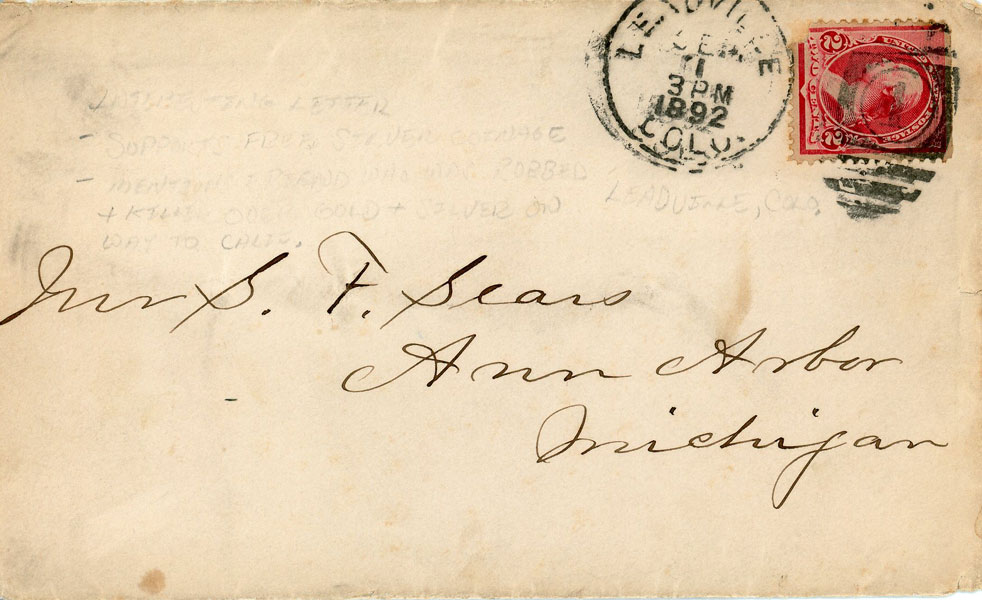 LEADVILLE
11
3 PM
1892
COLO.
UNITED STATES POSTAGE
2 2
INTERESTING LETTER
- SUPPORTS FREE SILVER COINAGE
- MENTIONS FRIEND WHO WAS ROBBED
+ KILLED OVER GOLD + SILVER ON
WAY TO CALIF.
LEADVILLE, COLO.
Mr S. F. Sears
Ann Arbor
Michigan